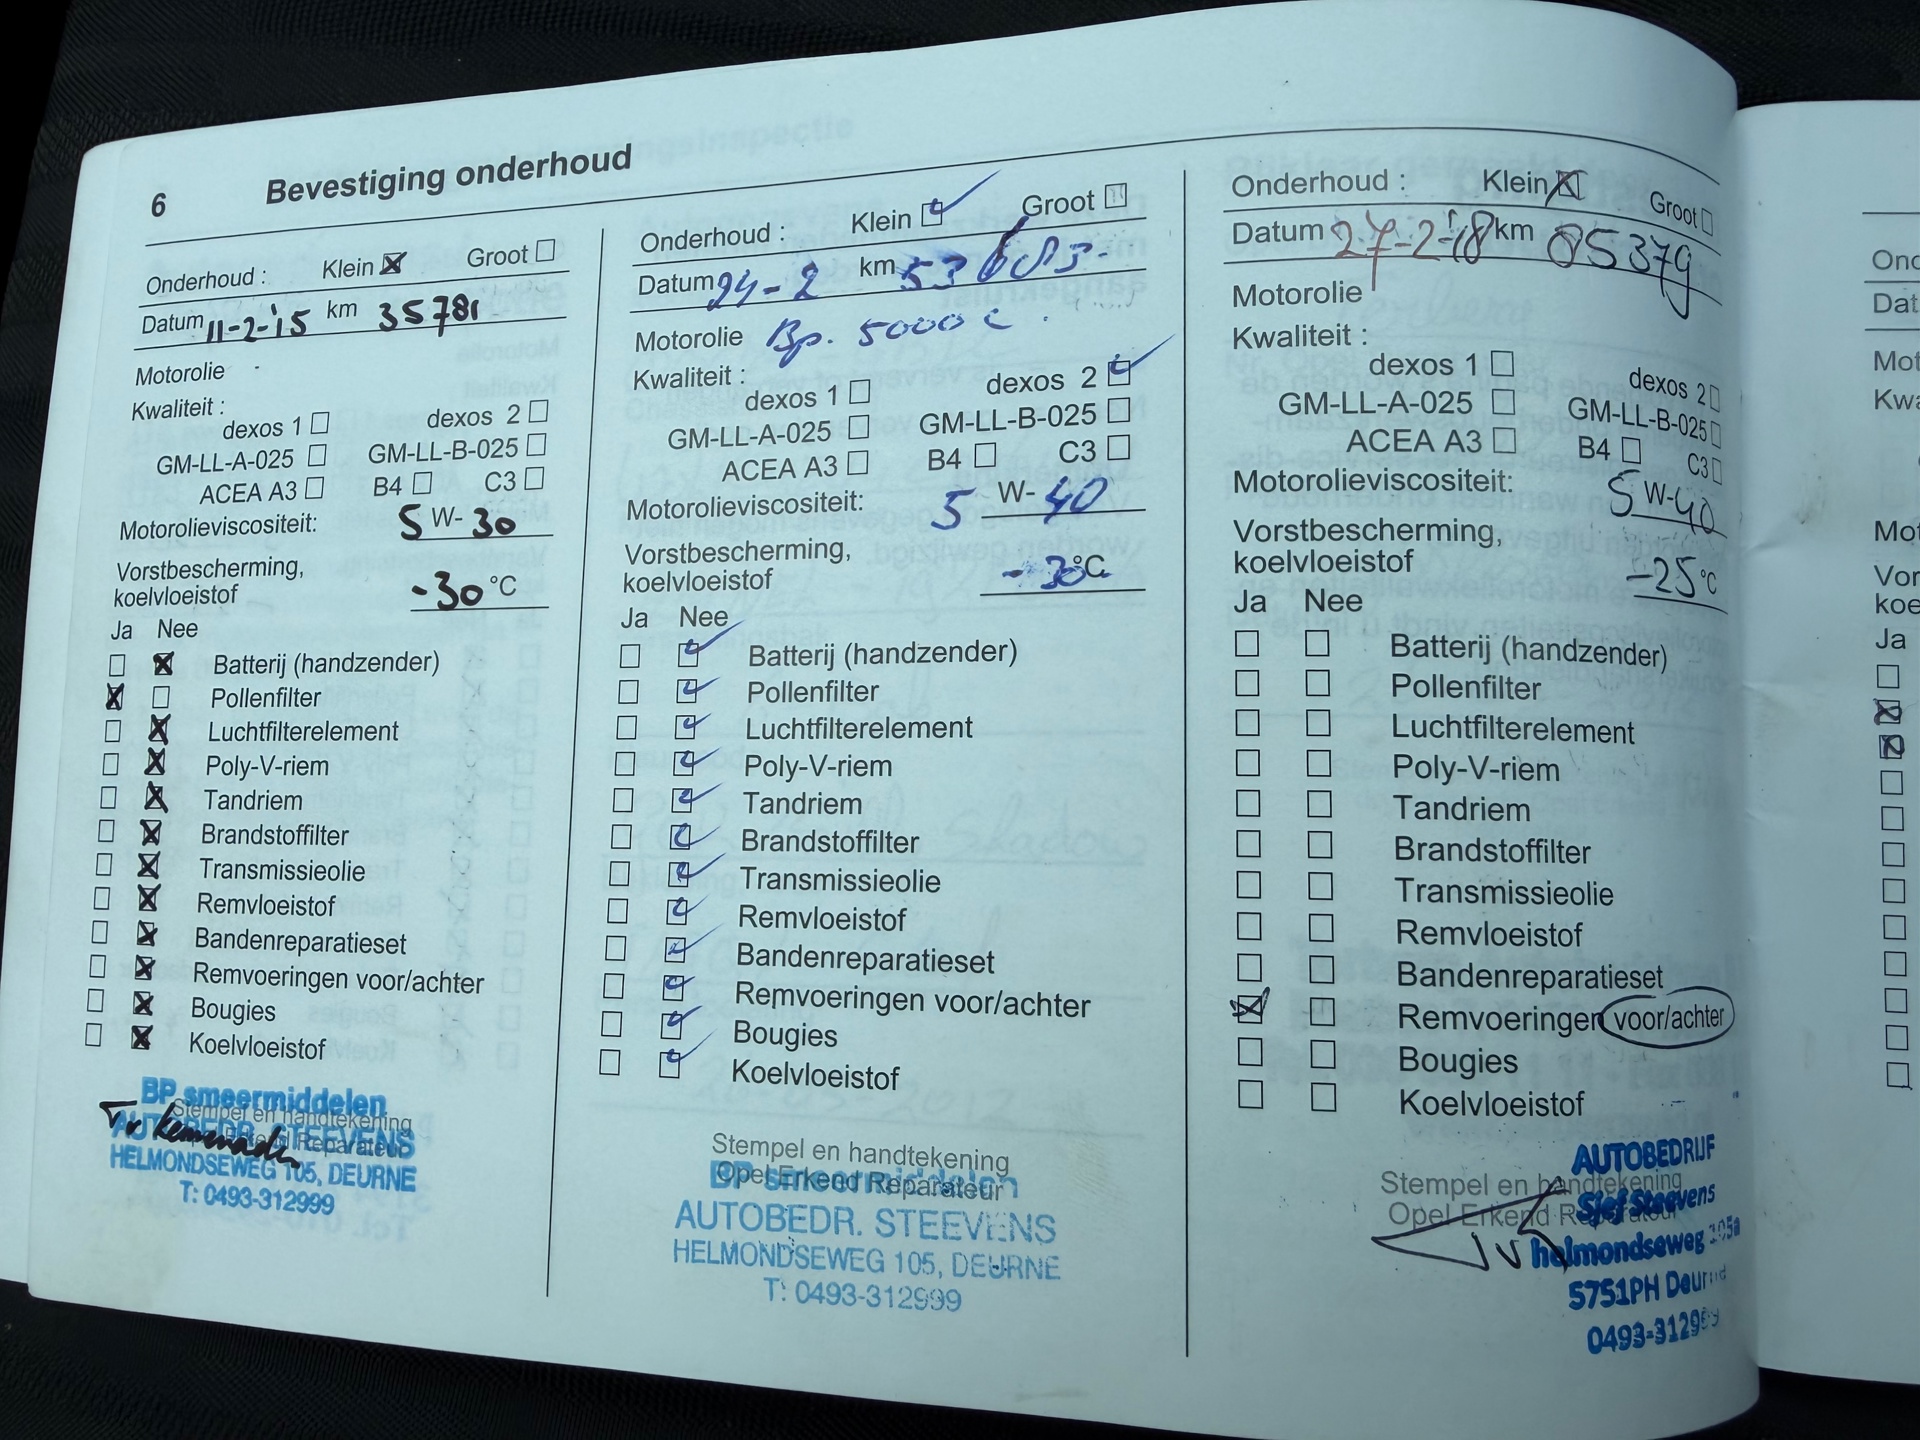 6 Bevestiging onderhoud
Onderhoud : Klein Groot
Datum 11-2-'15 km 35781
Motorolie
Kwaliteit :
dexos 1 dexos 2
GM-LL-A-025 GM-LL-B-025
ACEA A3 B4 C3
Motorolieviscositeit: 5 W- 30
Vorstbescherming,
koelvloeistof -30 °C
Ja Nee
Batterij (handzender)
Pollenfilter
Luchtfilterelement
Poly-V-riem
Tandriem
Brandstoffilter
Transmissieolie
Remvloeistof
Bandenreparatieset
Remvoeringen voor/achter
Bougies
Koelvloeistof
BP smeermiddelen
Stempel en handtekening
AUTOBEDR. STEEVENS
Opel Erkend Reparateur
HELMONDSEWEG 105, DEURNE
T: 0493-312999
Onderhoud : Klein Groot
Datum 24-2 km 53
Motorolie Bp. 5000
Kwaliteit :
dexos 1 dexos 2
GM-LL-A-025 GM-LL-B-025
ACEA A3 B4 C3
Motorolieviscositeit: 5 W- 40
Vorstbescherming,
koelvloeistof -30 °C
Ja Nee
Batterij (handzender)
Pollenfilter
Luchtfilterelement
Poly-V-riem
Tandriem
Brandstoffilter
Transmissieolie
Remvloeistof
Bandenreparatieset
Remvoeringen voor/achter
Bougies
Koelvloeistof
Stempel en handtekening
Opel Erkend Reparateur
BP smeermiddelen
AUTOBEDR. STEEVENS
HELMONDSEWEG 105, DEURNE
T: 0493-312999
Onderhoud : Klein Groot
Datum 27-2-'18 km 85379
Motorolie
Kwaliteit :
dexos 1 dexos 2
GM-LL-A-025 GM-LL-B-025
ACEA A3 B4 C3
Motorolieviscositeit: 5 W-40
Vorstbescherming,
koelvloeistof -25 °C
Ja Nee
Batterij (handzender)
Pollenfilter
Luchtfilterelement
Poly-V-riem
Tandriem
Brandstoffilter
Transmissieolie
Remvloeistof
Bandenreparatieset
Remvoeringen voor/achter
Bougies
Koelvloeistof
AUTOBEDRIJF
Stempel en handtekening
Sjef Steevens
Opel Erkend Reparateur
helmondseweg 105a
5751PH Deurne
0493-312999
Ja